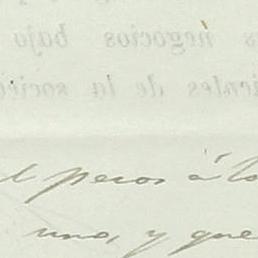 s negocios bajo
ientes de la socied
d pesos á lo
uno, y que